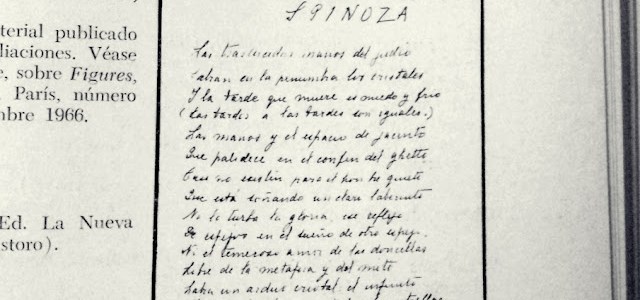 terial publicado
liaciones. Véase
e, sobre Figures,
París, número
mbre 1966.
Ed. La Nueva
storo).
SPINOZA
Las traslúcidas manos del judío
Labran en la penumbra los cristales
Y la tarde que muere es miedo y frío
(Las tardes a las tardes son iguales.)
Las manos y el espacio de jacinto
Que palidece en el confín del ghetto
Casi no existen para el hombre quieto
Que está soñando un claro laberinto
No lo turba la gloria, ese reflejo
De espejos en el sueño de otro espejo,
Ni el temeroso amor de las doncellas
Libre de la metáfora y del mito
Labra un arduo cristal: el infinito